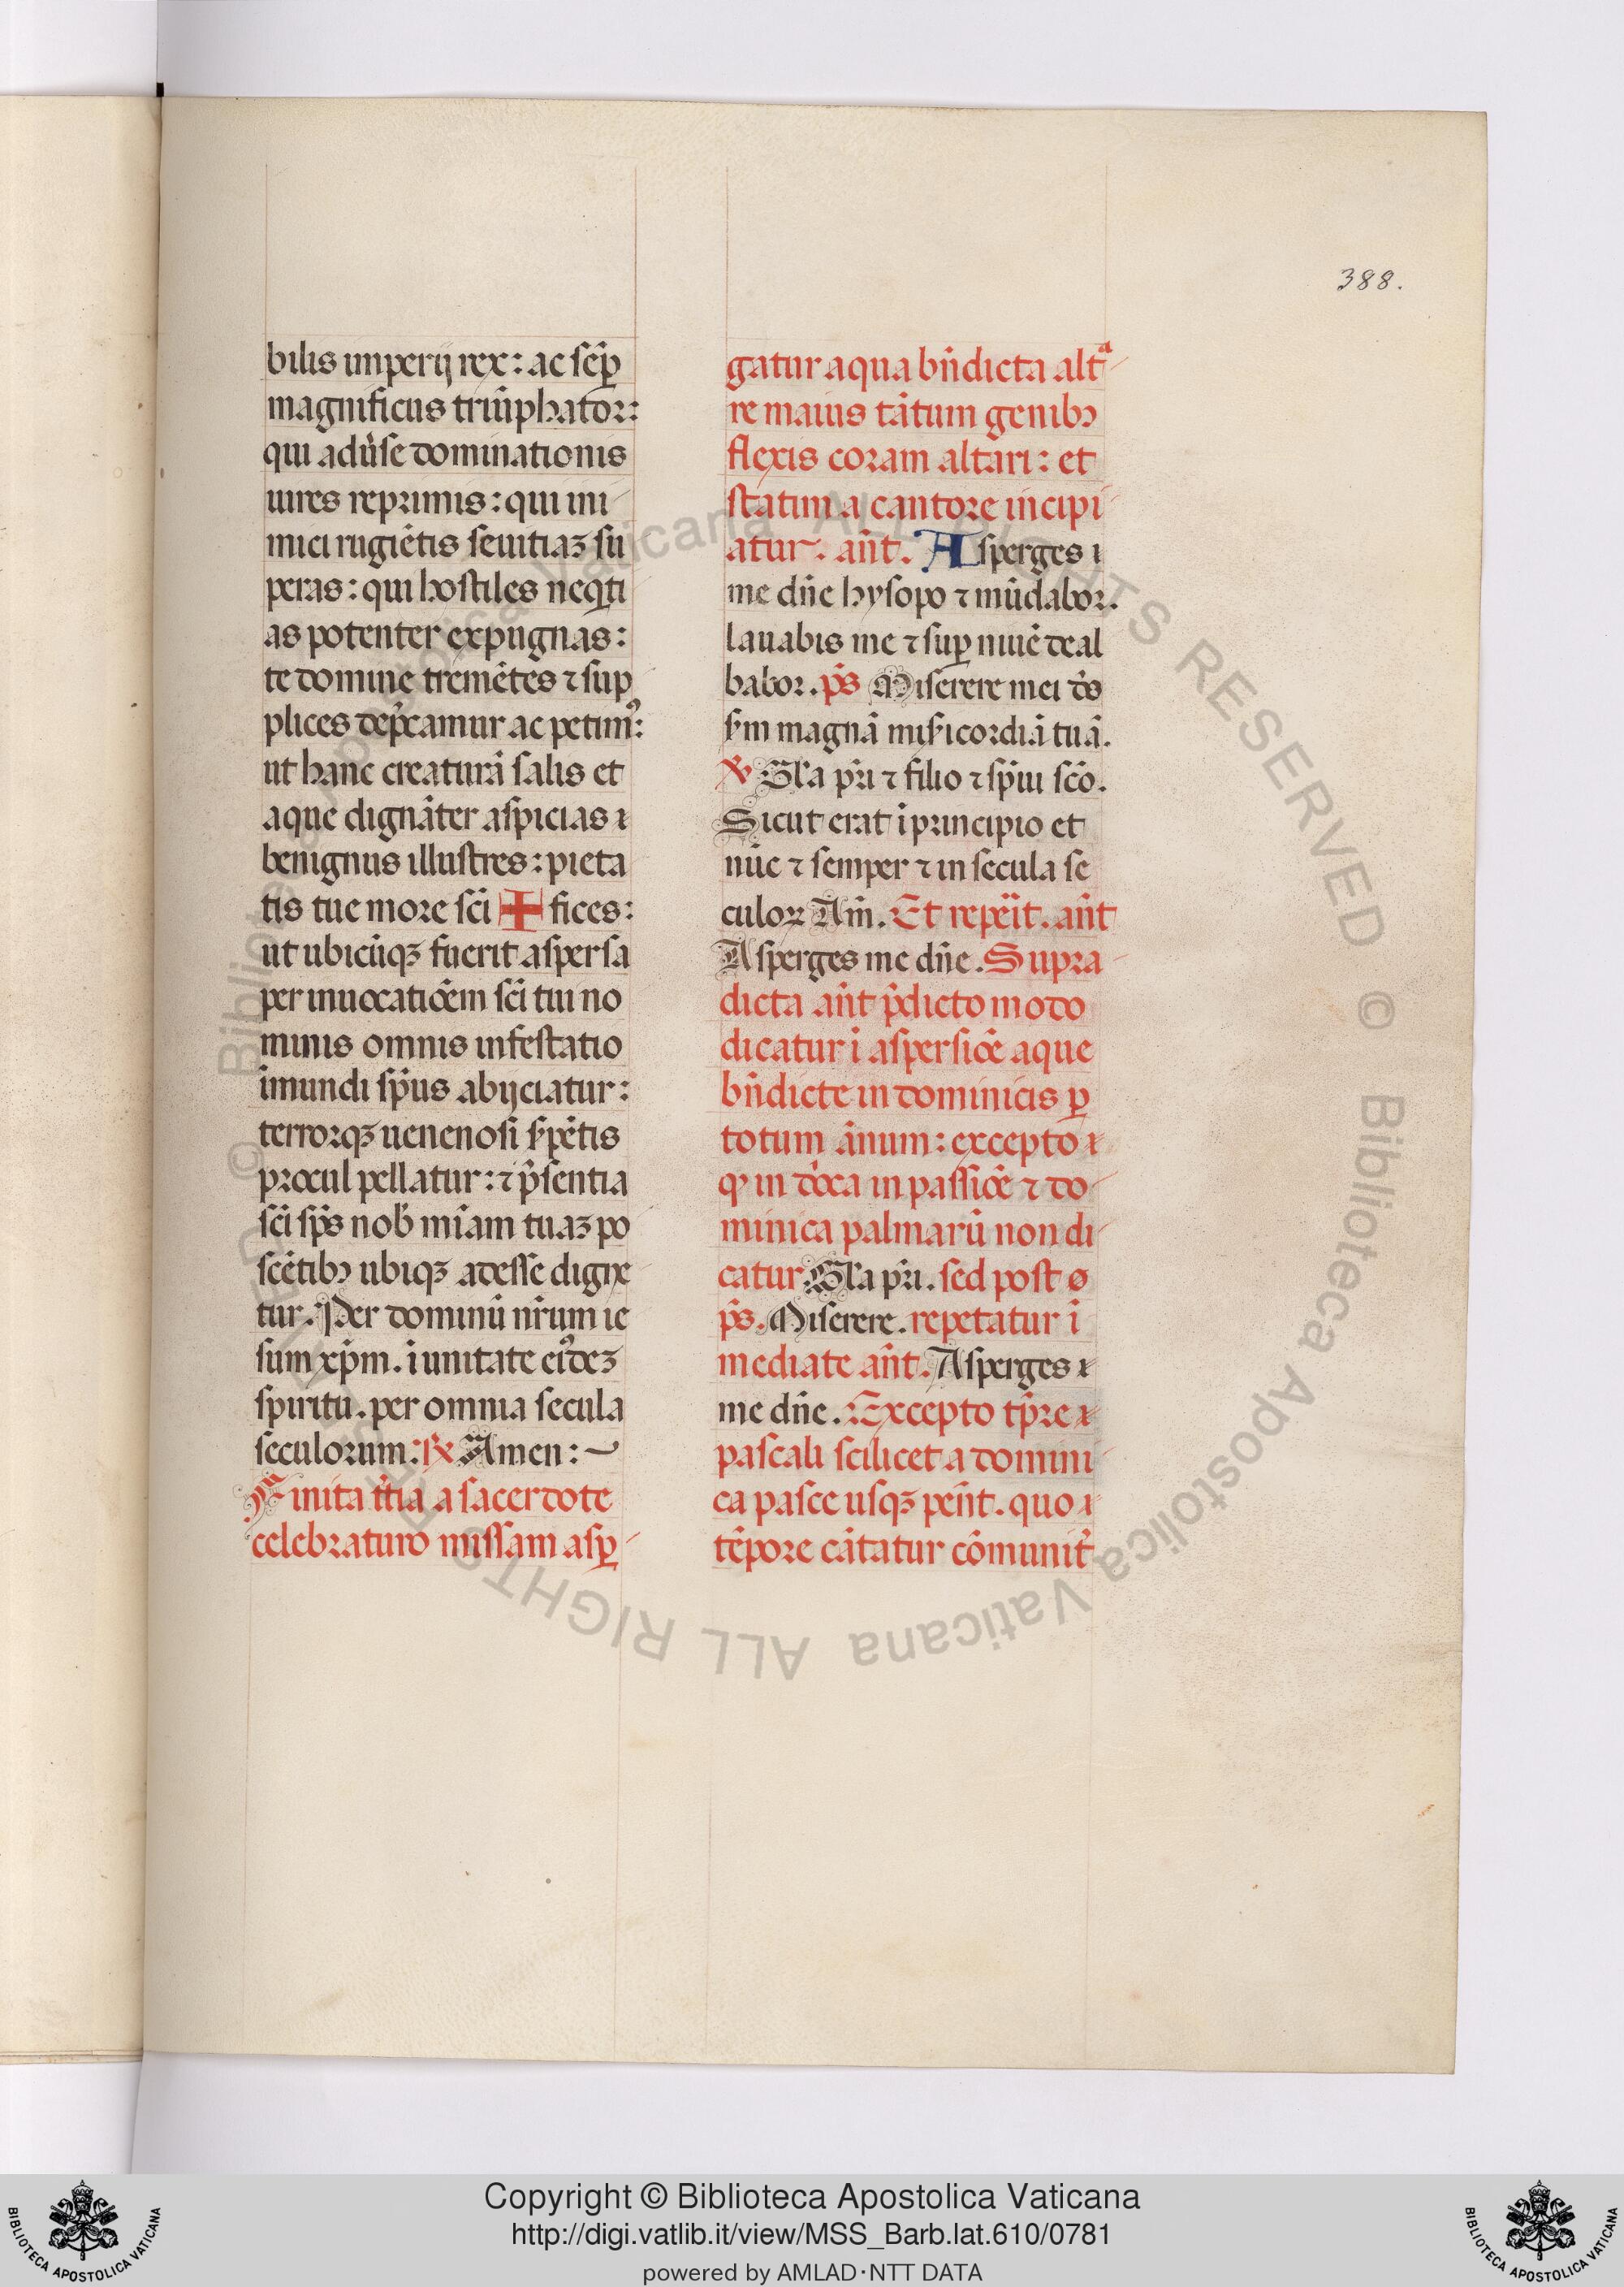 388.
bilis imperij rex: ac sēp̱
magnificus triūphator:
qui adúse dominationis
uires reprimis: qui ini
mici rugiētis seuitiaꝫ su
peras: qui hostiles neqͥti
as potenter expugnas:
te domine tremētes ⁊ sup
plices dep̄camur ac petimꝰ:
ut hanc creaturā salis et
aque dignāter aspicias
benignus illustres: pieta
tis tue more sc̄i ✠ fices:
ut ubicūqꝫ fuerit aspersa
per inuocatiōem sc̄i tui no
minis omnis infestatio
īmundi sp̄us abijciatur:
terrorqꝫ uenenosi s̄pētis
procul pellatur: ⁊ p̄sentia
sc̄i sp̄s nob̄ miām tuaꝫ po
scētibꝫ ubiqꝫ adesse digne
tur. Per dominū nr̄um ie
sum xp̄m. ī unitate eiꝰdeꝫ
spiritu. per omnia secula
seculorum: ℟ Amen:
Finita m̄ia a sacerdote
celebraturo missam asꝑ
gatur aqua bn̄dicta altᵃ
re maius tātum genibꝫ
flexis coram altari: et
statim a cantore incipi
atur. an̄t. Asperges
me dn̄e hysopo ⁊ mūdabor.
lauabis me ⁊ suꝑ niuē deal
babor. p̄s Miserere mei ds̄
s̄m magnā mis̄icordiā tuā.
℣ Gl̄a pr̄i ⁊ filio ⁊ sp̄iu scō.
Sicut erat ī principio et
nūc ⁊ semper ⁊ in secula se
culoꝝ Am̄. Et repēit. an̄t
Asperges me dn̄e. Supra
dicta an̄t p̄dicto modo
dicatur ī aspersiōe aque
bn̄dicte in dominicis ꝑ
totum ānum: excepto
ꝙ in dōca in passiōe ⁊ do
minica palmarū non di
catur Gl̄a pr̄i. sed post ø
p̄s. Miserere. repetatur ī
mediate an̄t. Asperges
me dn̄e. Excepto tp̄re
pascali scilicet a domini
ca pasce usqꝫ pen̄t. quo
tēpore cātatur cōmunit̄
© Biblioteca Apostolica Vaticana ALL RIGHTS RESERVED © Biblioteca Apostolica Vaticana ALL RIGHTS RESERVED
Copyright © Biblioteca Apostolica Vaticana
http://digi.vatlib.it/view/MSS_Barb.lat.610/0781
powered by AMLAD·NTT DATA
BIBLIOTECA APOSTOLICA VATICANA
BIBLIOTECA APOSTOLICA VATICANA